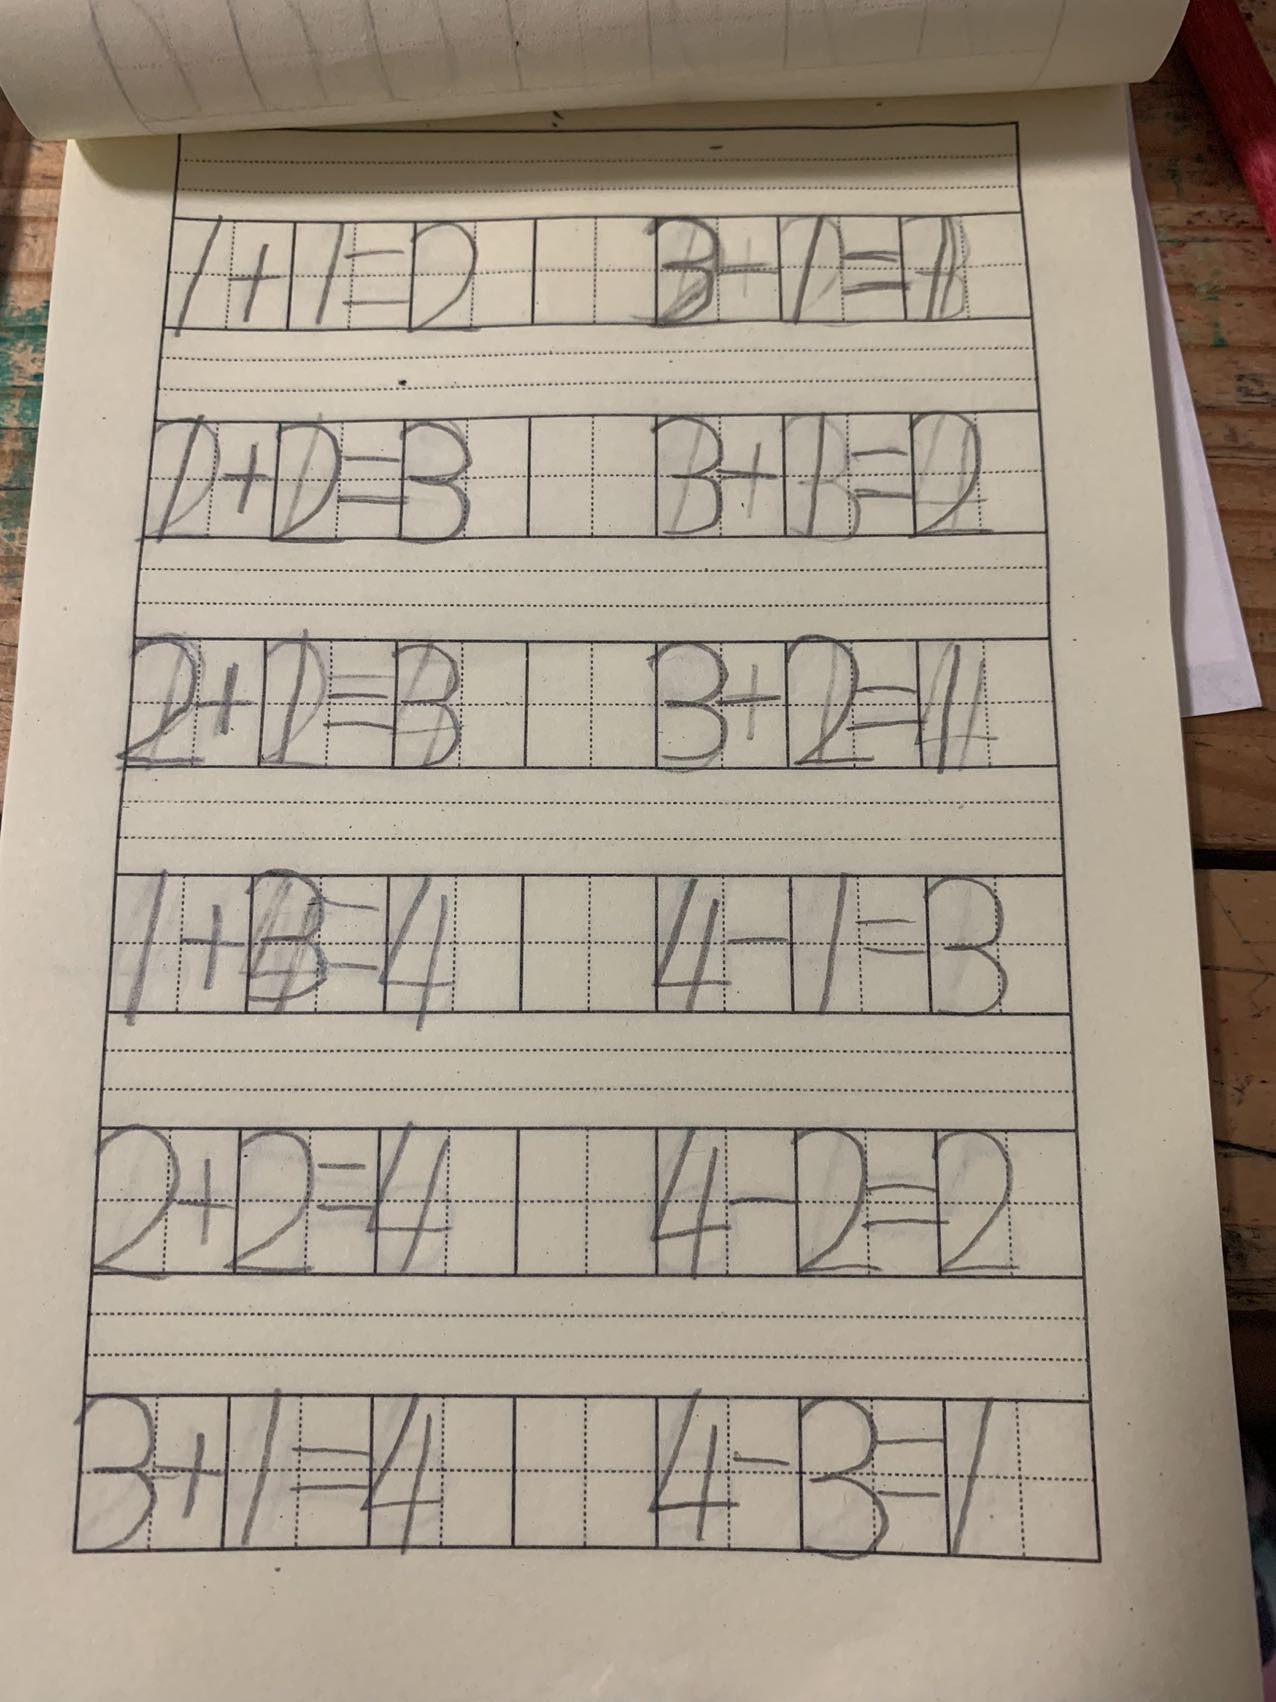 1+1=2 3-1=1
1+2=3 3+1=2
2+1=3 3+2=1
1+3=4 4-1=3
2+2=4 4-2=2
3+1=4 4-3=1